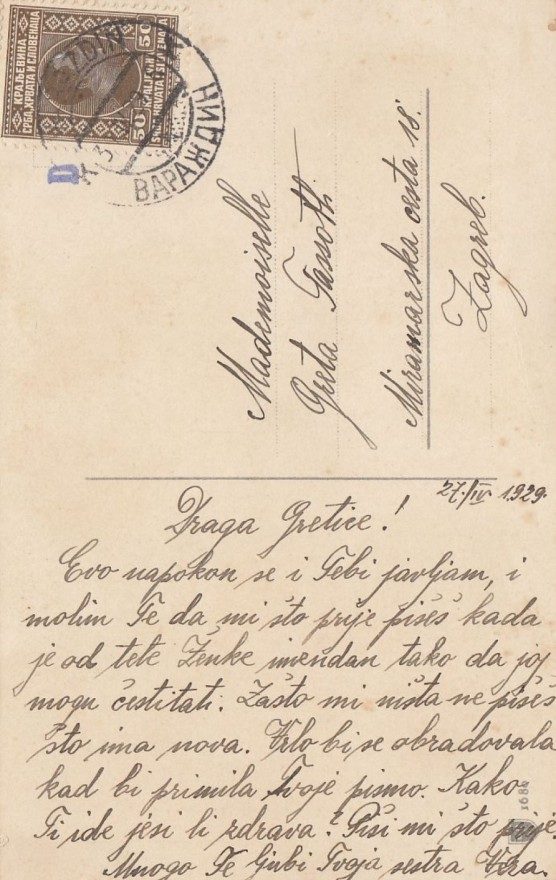 КРАЉЕВИНА
СРБА, ХРВАТА И СЛОВЕНАЦА
50
50
KRALJEVINA
HRVATA I SLOVENACA
ВАРАЖДИН
Mademoiselle
Greta
Miramarska cesta 18.
Zagreb.
27./IV 1929.
Draga Gretice!
Evo napokon se i Tebi javljam, i
molim Te da mi što prije pišeš kada
je od tete Ženke imendan tako da joj
mogu čestitati. Zašto mi ništa ne pišeš
što ima nova. Vrlo bi se obradovala
kad bi primila Tvoje pismo. Kako
Ti ide jesi li zdrava? Piši mi što prije.
Mnogo Te ljubi Tvoja sestra Vera.